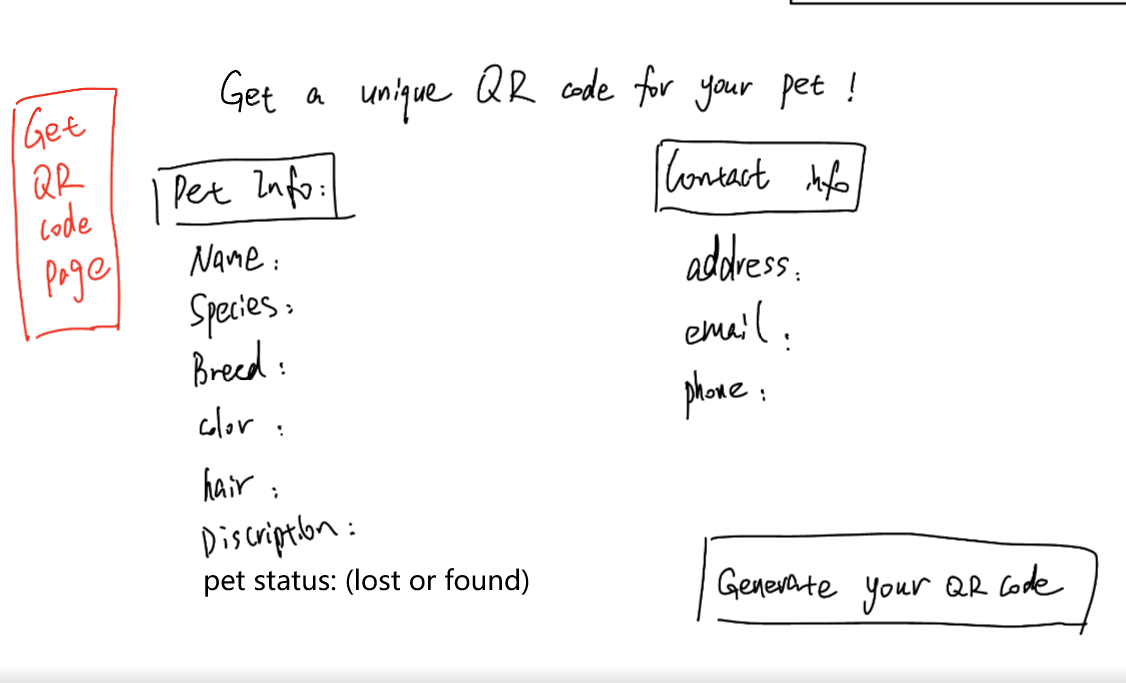 Get a unique QR code for your pet !
Get
QR
code
page
Pet Info:
Name :
Species :
Breed :
color :
hair :
Discription :
pet status: (lost or found)
Contact info
address :
email :
phone :
Generate your QR code